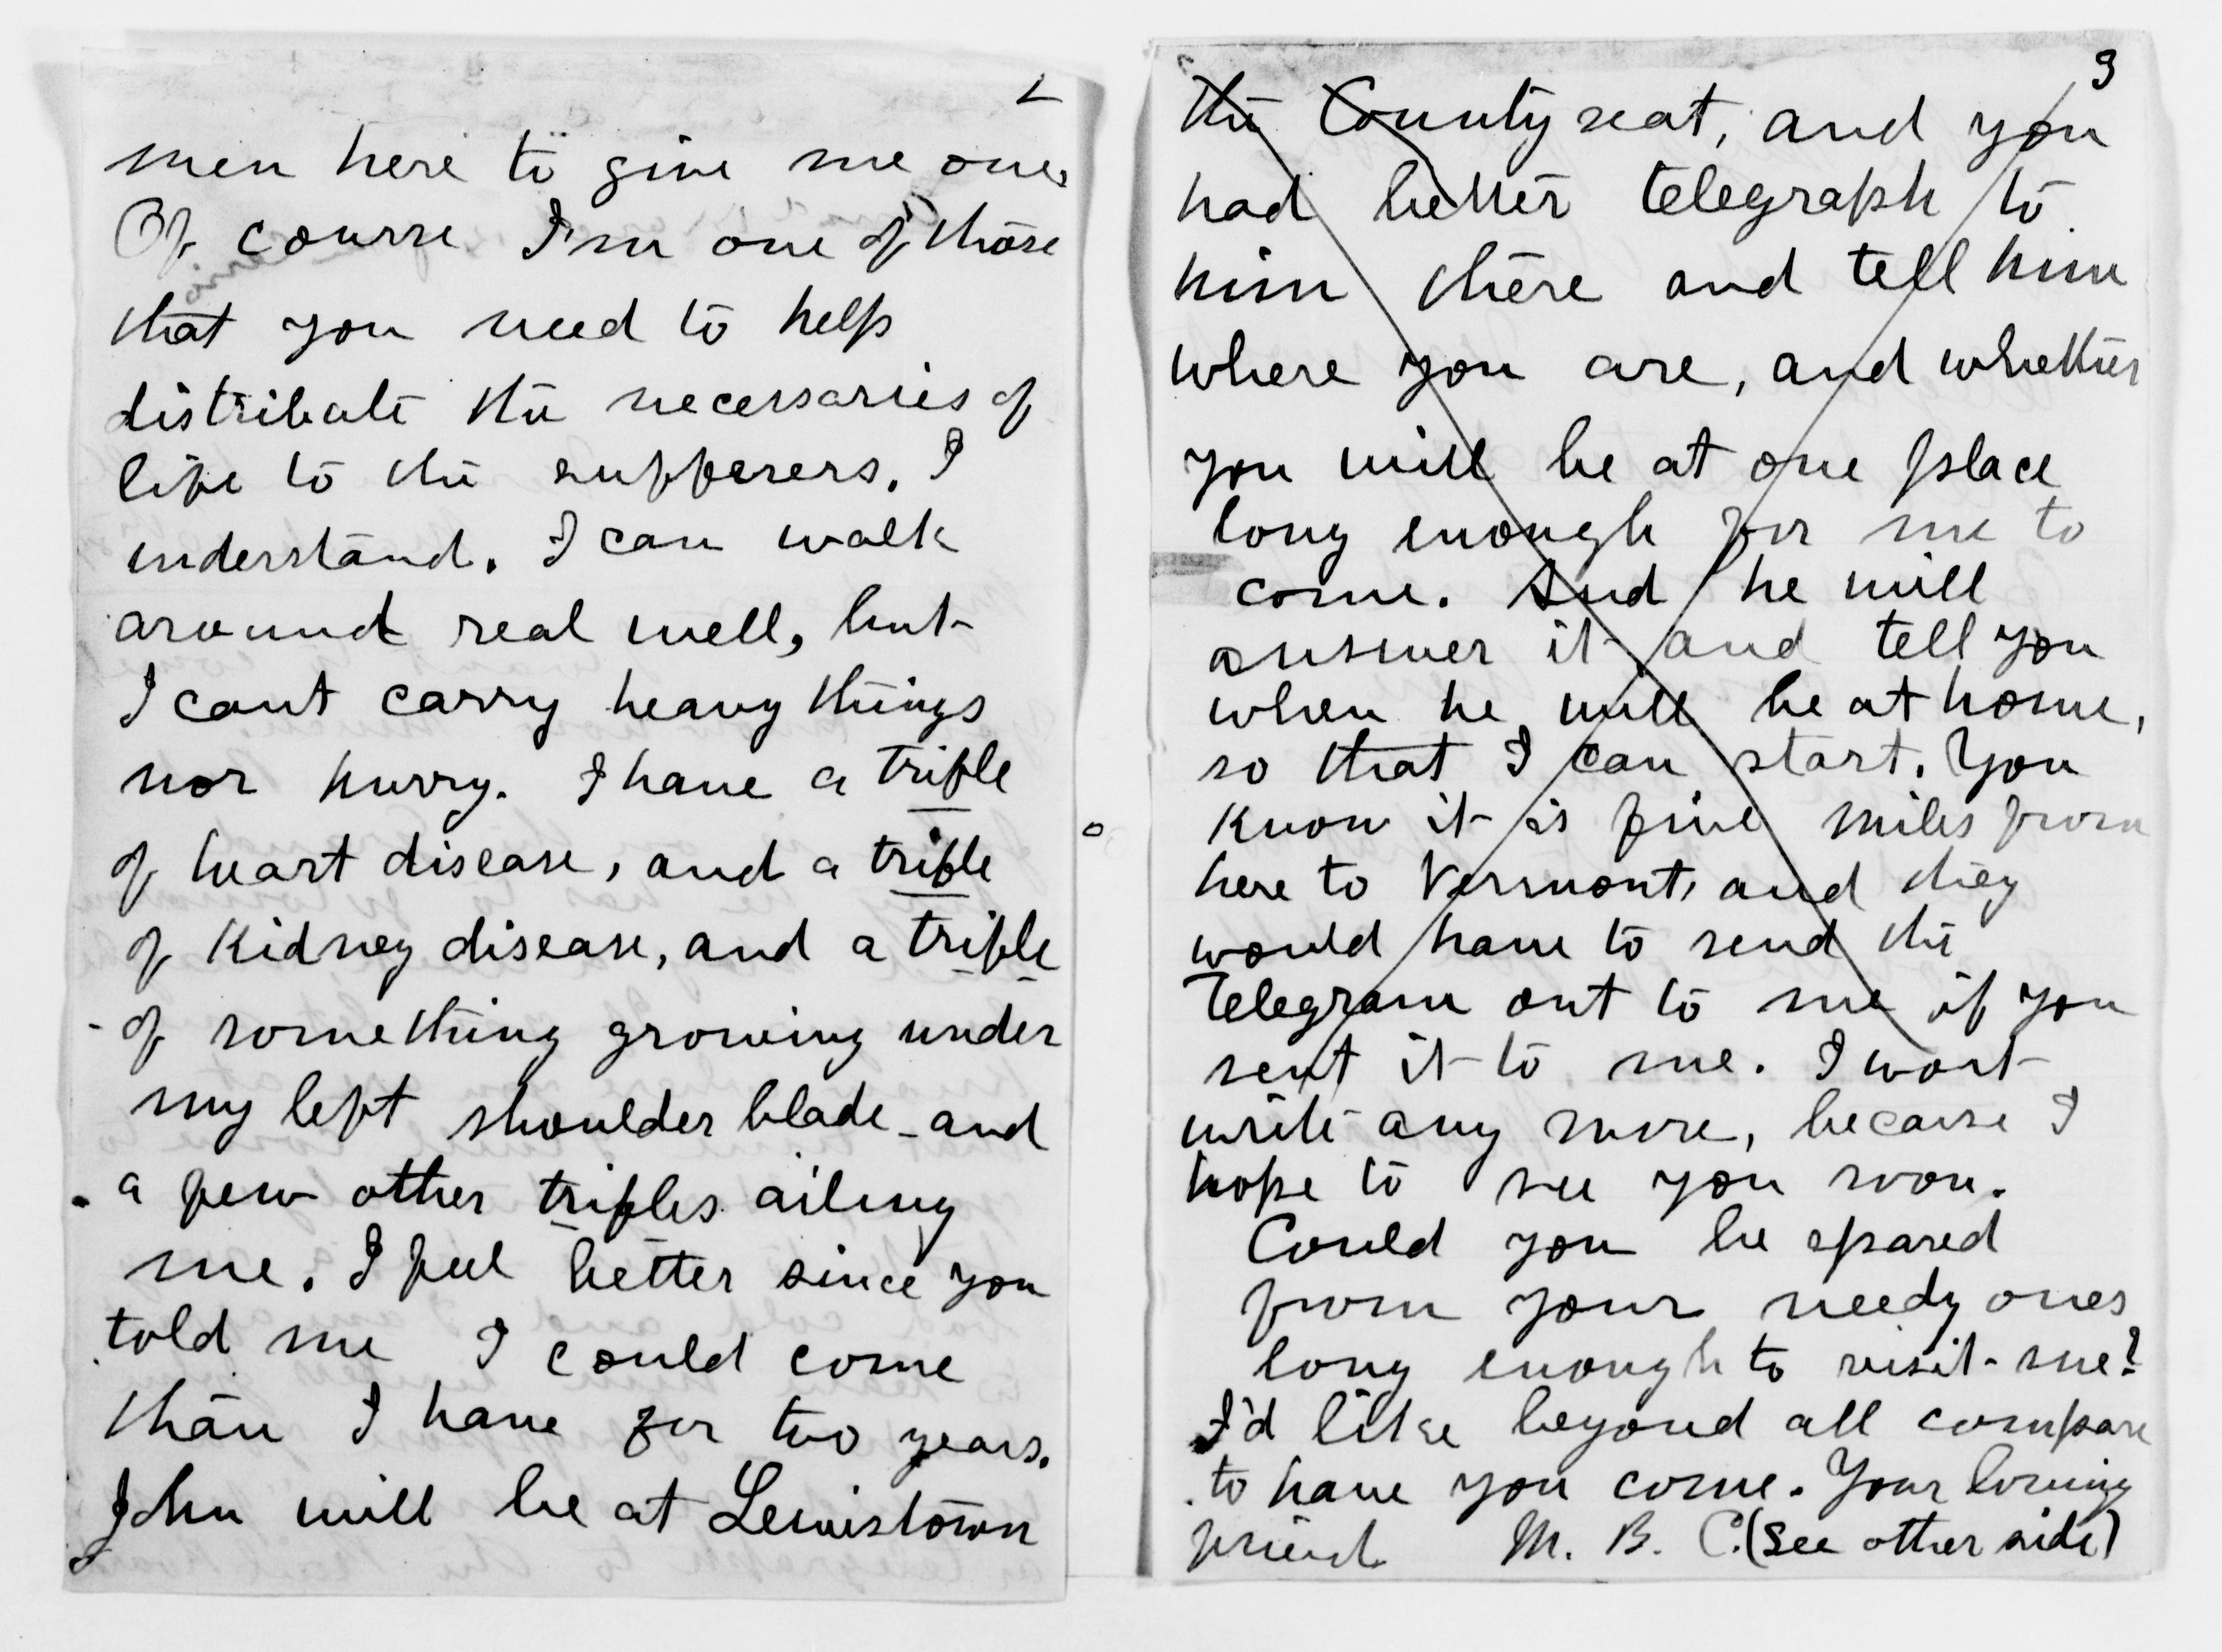 2
men here to give me one.
Of course I'm one of those
that you need to help
distribute the necessaries of
life to the sufferers. I
understand. I can walk
around real well, but
I cant carry heavy things
nor hurry. I have a trifle
of heart disease, and a trifle
of Kidney disease, and a trifle
of something growing under
my left shoulder blade - and
a few other trifles ailing
me. I feel better since you
told me I could come
than I have for two years.
John will be at Lewistown
3
the County seat, and you
had better telegraph to
him there and tell him
where you are, and whether
you will be at one place
long enough for me to
come. And he will
answer it and tell you
when he will be at home,
so that I can start. You
know it is five miles from
here to Vermont, and they
would have to send the
Telegram out to me if you
sent it to me. I wont
write any more, because I
hope to see you soon.
Could you be spared
from your needy ones
long enough to visit me?
I'd like beyond all compare
to have you come. Your loving
friend M. B. C. (See other side)